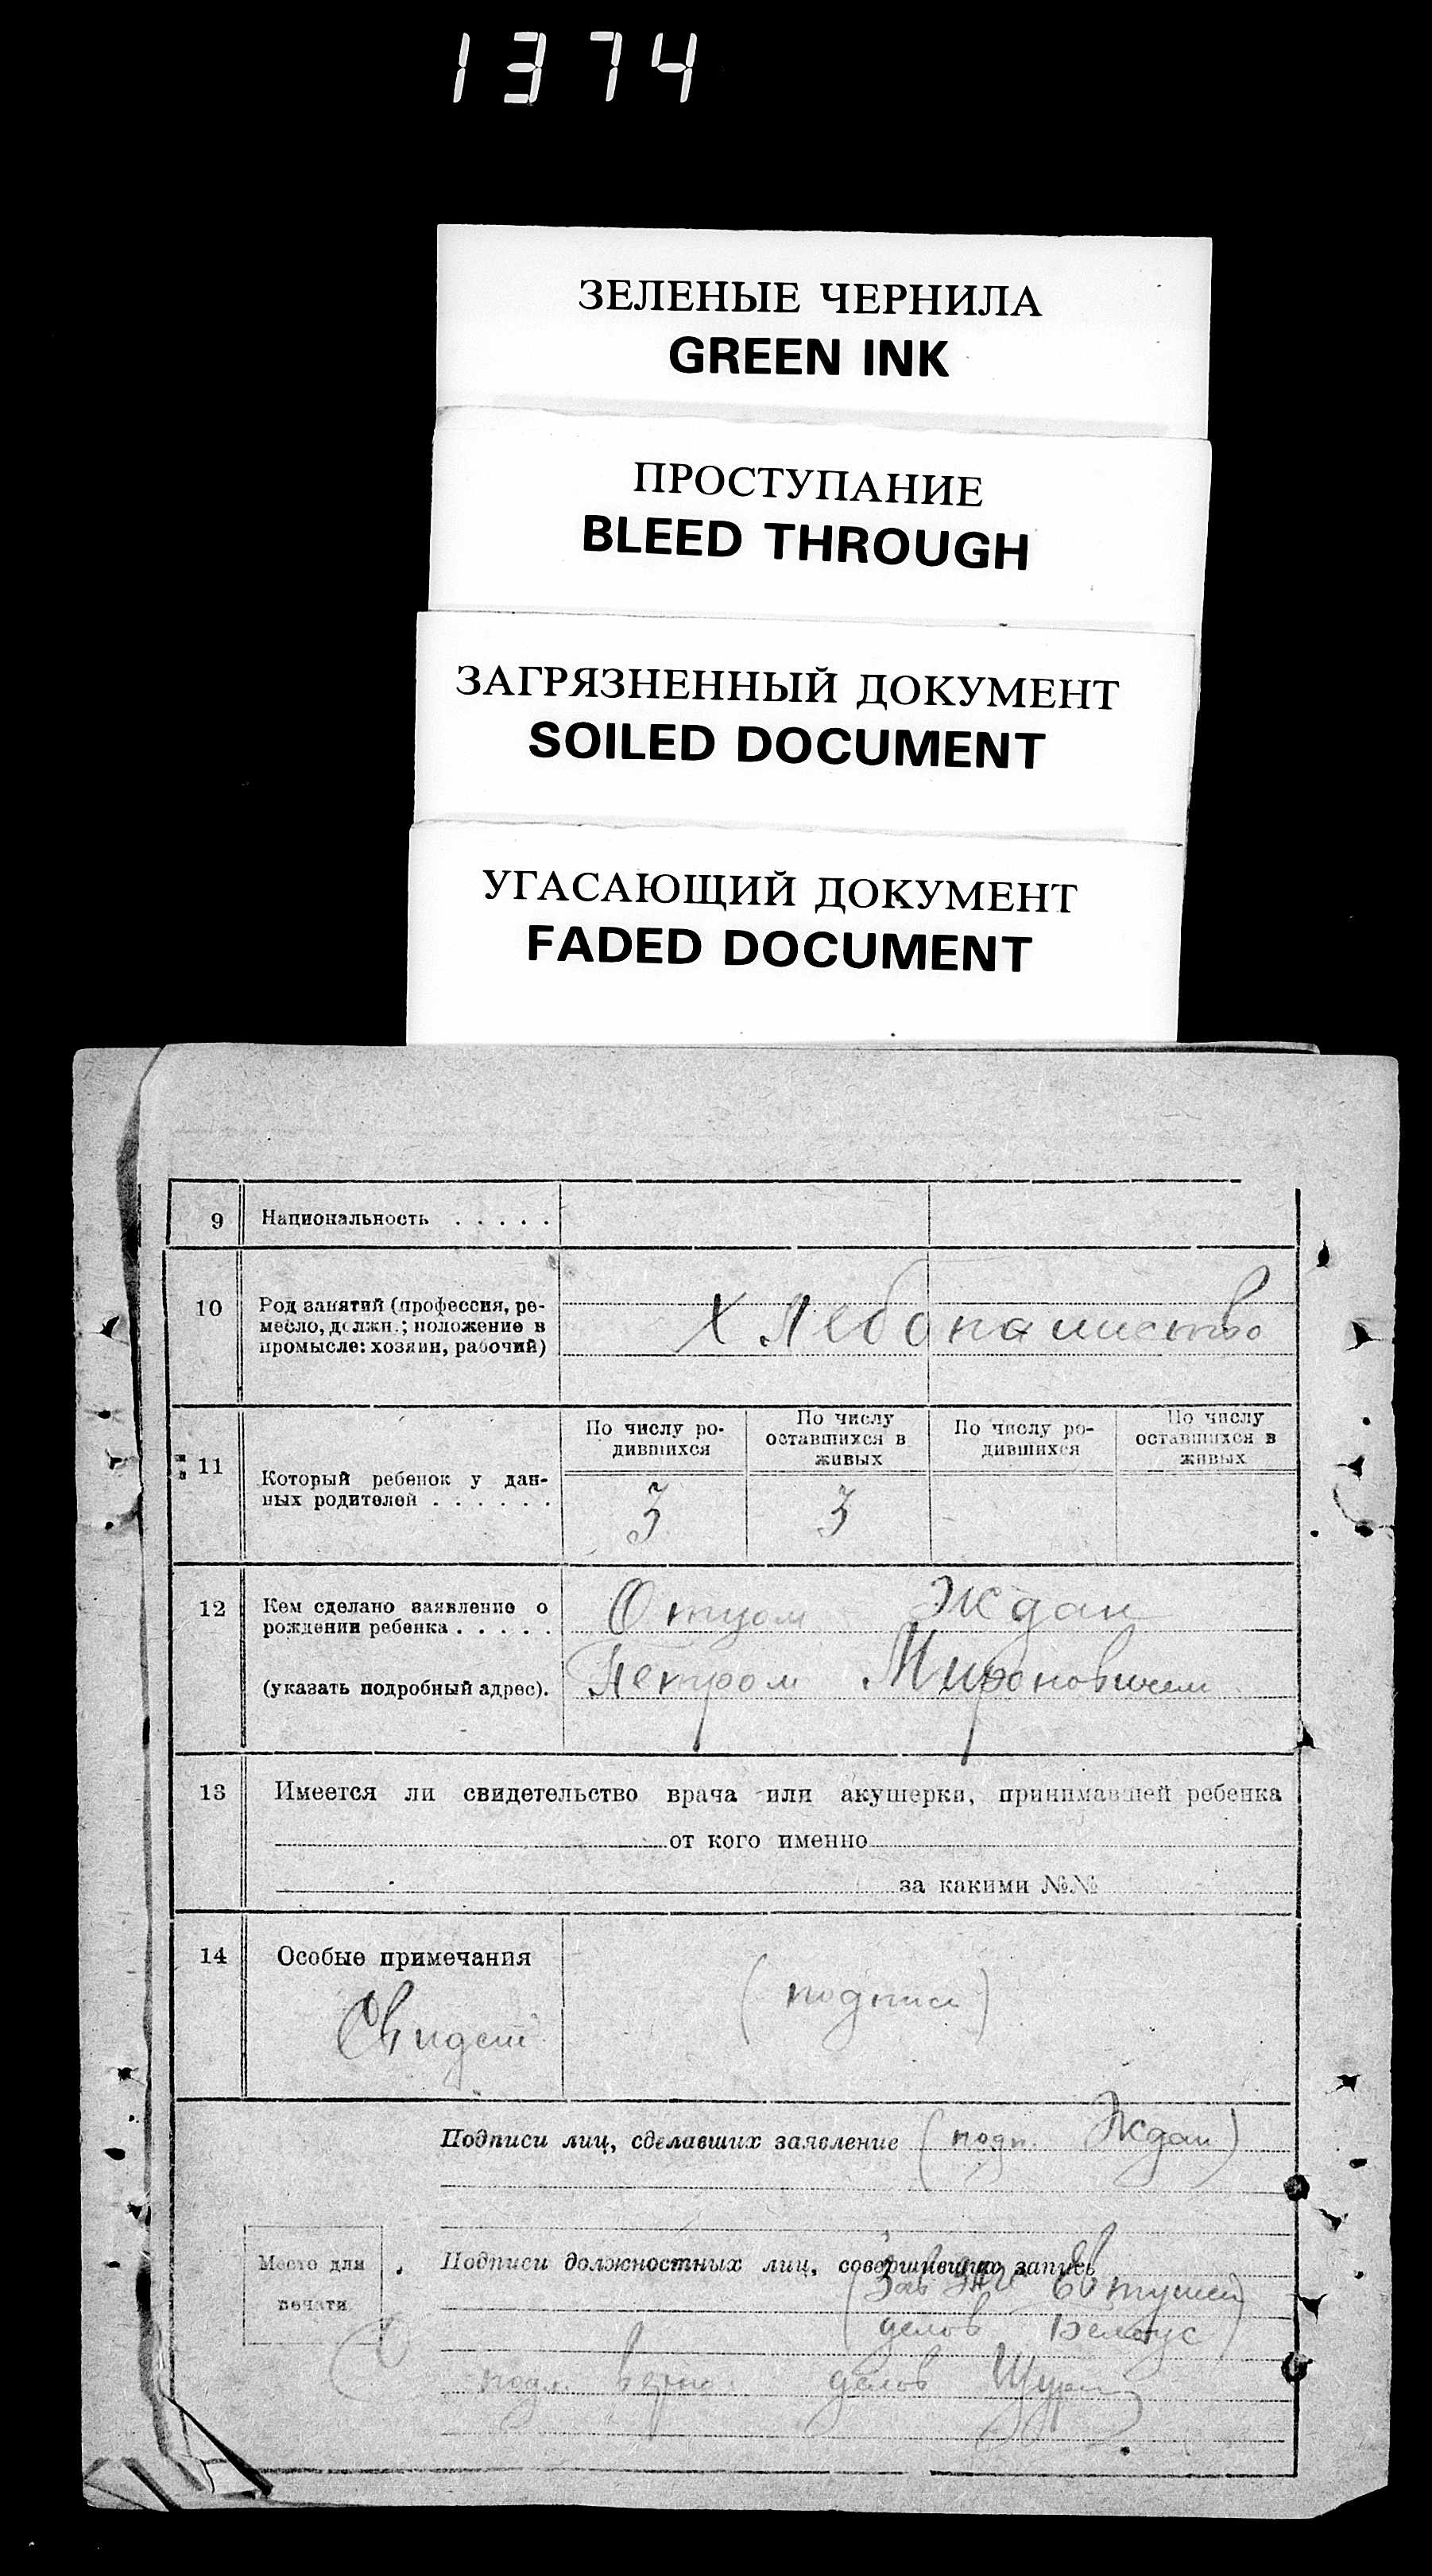 1374
ЗЕЛЕНЫЕ ЧЕРНИЛА
GREEN INK
ПРОСТУПАНИЕ
BLEED THROUGH
ЗАГРЯЗНЕННЫЙ ДОКУМЕНТ
SOILED DOCUMENT
УГАСАЮЩИЙ ДОКУМЕНТ
FADED DOCUMENT
9 Национальность . . . . .
10 Род занятий (профессия, ре-
месло, должн.; положение в
промысле: хозяин, рабочий)
Хлебопашество
11 Который ребенок у дан-
ных родителей . . . . . .
По числу ро-
дившихся
По числу
оставшихся в
живых
По числу ро-
дившихся
По числу
оставшихся в
живых
3 3
12 Кем сделано заявление о
рождении ребенка . . . . .
(указать подробный адрес).
Отцом Ждан
Петром Мироновичем
13 Имеется ли свидетельство врача или акушерки, принимавшей ребенка
от кого именно
за какими №№
14 Особые примечания
Свидет
(подписи)
Подписи лиц, сделавших заявление (подп. Ждан)
Место для
печати
Подписи должностных лиц, совершивших запись
Зав
делов Белоус)
подл. верно: делов